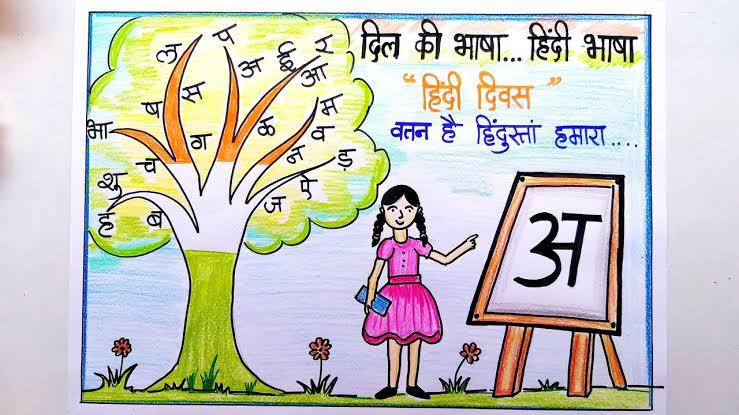 दिल की भाषा... हिंदी भाषा
"हिंदी दिवस"
वतन है हिंदुस्तां हमारा....
ल
प
र
अ
ई
आ
ष
स
म
भा
ग
क
व
च
न
ड़
शु
ऐ
ह
ब
ज
अ